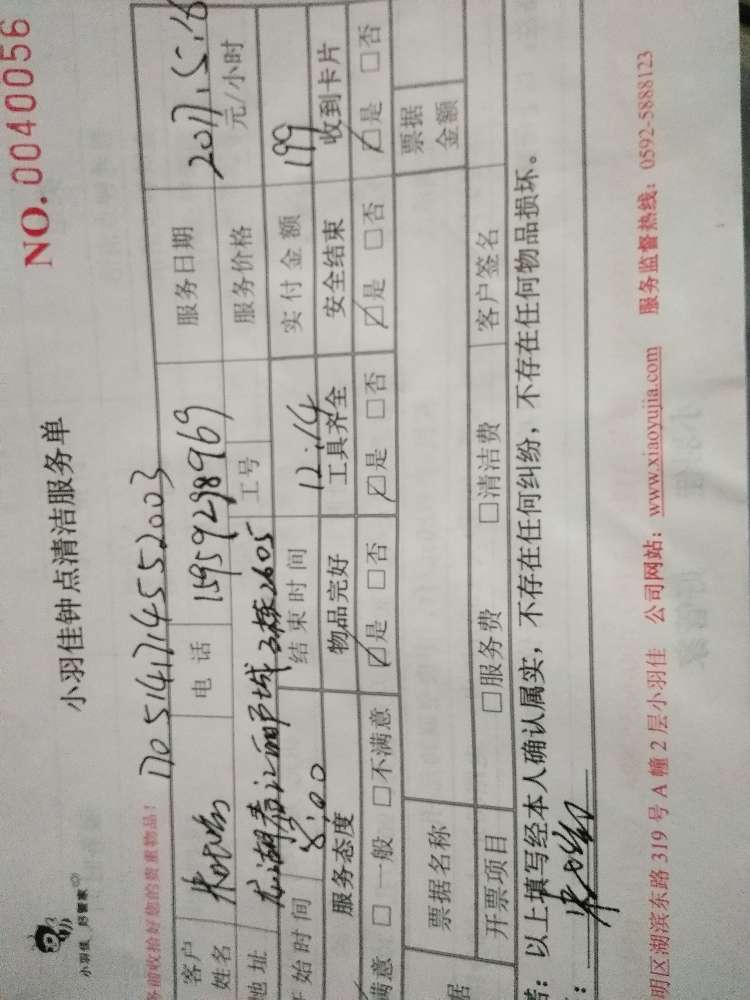 小羽佳 好管家
NO.0040056
小羽佳钟点清洁服务单
务前收拾好您的贵重物品!
1705141714552003
客户
姓名
电 话
15959298969
服务日期
2017.5.16
地址
2栋2605
工号
服务价格
元/小时
开始时间
8:00
结束时间
12:14
实付金额
199
服务态度
物品完好
工具齐全
安全结束
收到卡片
满意 □一般 □不满意
是 □否
是 □否
是 □否
是 □否
据
票据名称
票据
金额
开票项目
□服务费
□清洁费
客户签名
以上填写经本人确认属实，不存在任何纠纷，不存在任何物品损坏。
明区湖滨东路 319 号 A 幢 2 层小羽佳 公司网站：www.xiaoyujia.com 服务监督热线：0592-5888123